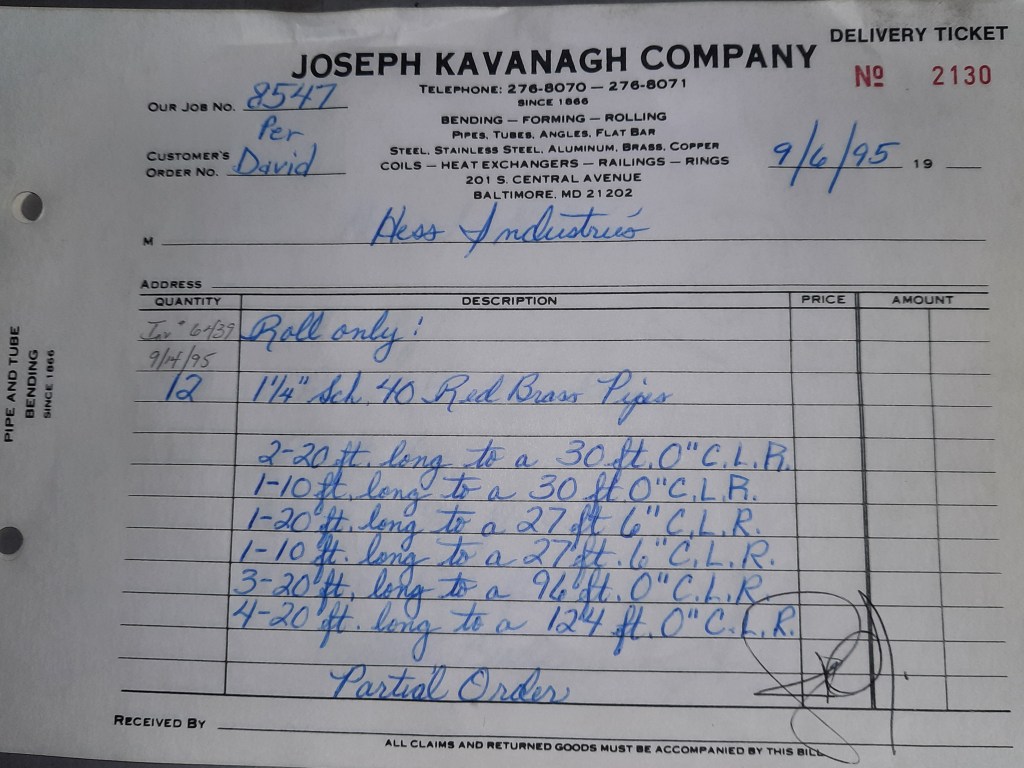 DELIVERY TICKET
JOSEPH KAVANAGH COMPANY
Nº 2130
TELEPHONE: 276-8070 — 276-8071
SINCE 1866
OUR JOB NO. 8547
BENDING — FORMING — ROLLING
PIPES, TUBES, ANGLES, FLAT BAR
STEEL, STAINLESS STEEL, ALUMINUM, BRASS, COPPER
COILS — HEAT EXCHANGERS — RAILINGS — RINGS
201 S. CENTRAL AVENUE
BALTIMORE, MD 21202
Per
CUSTOMER'S
ORDER NO. David
9/6/95 19
M Hess Industries
ADDRESS
QUANTITY DESCRIPTION PRICE AMOUNT
Inv # 6439 Roll only:
9/14/95
12 1¼" Sch. 40 Red Brass Pipes
2-20 ft. long to a 30 ft. 0" C.L.R.
1-10 ft. long to a 30 ft 0" C.L.R.
1-20 ft. long to a 27 ft 6" C.L.R.
1-10 ft. long to a 27 ft. 6" C.L.R.
3-20 ft. long to a 96 ft. 0" C.L.R.
4-20 ft. long to a 124 ft. 0" C.L.R.
Partial Order
RECEIVED BY
ALL CLAIMS AND RETURNED GOODS MUST BE ACCOMPANIED BY THIS BILL
PIPE AND TUBE
BENDING
SINCE 1866